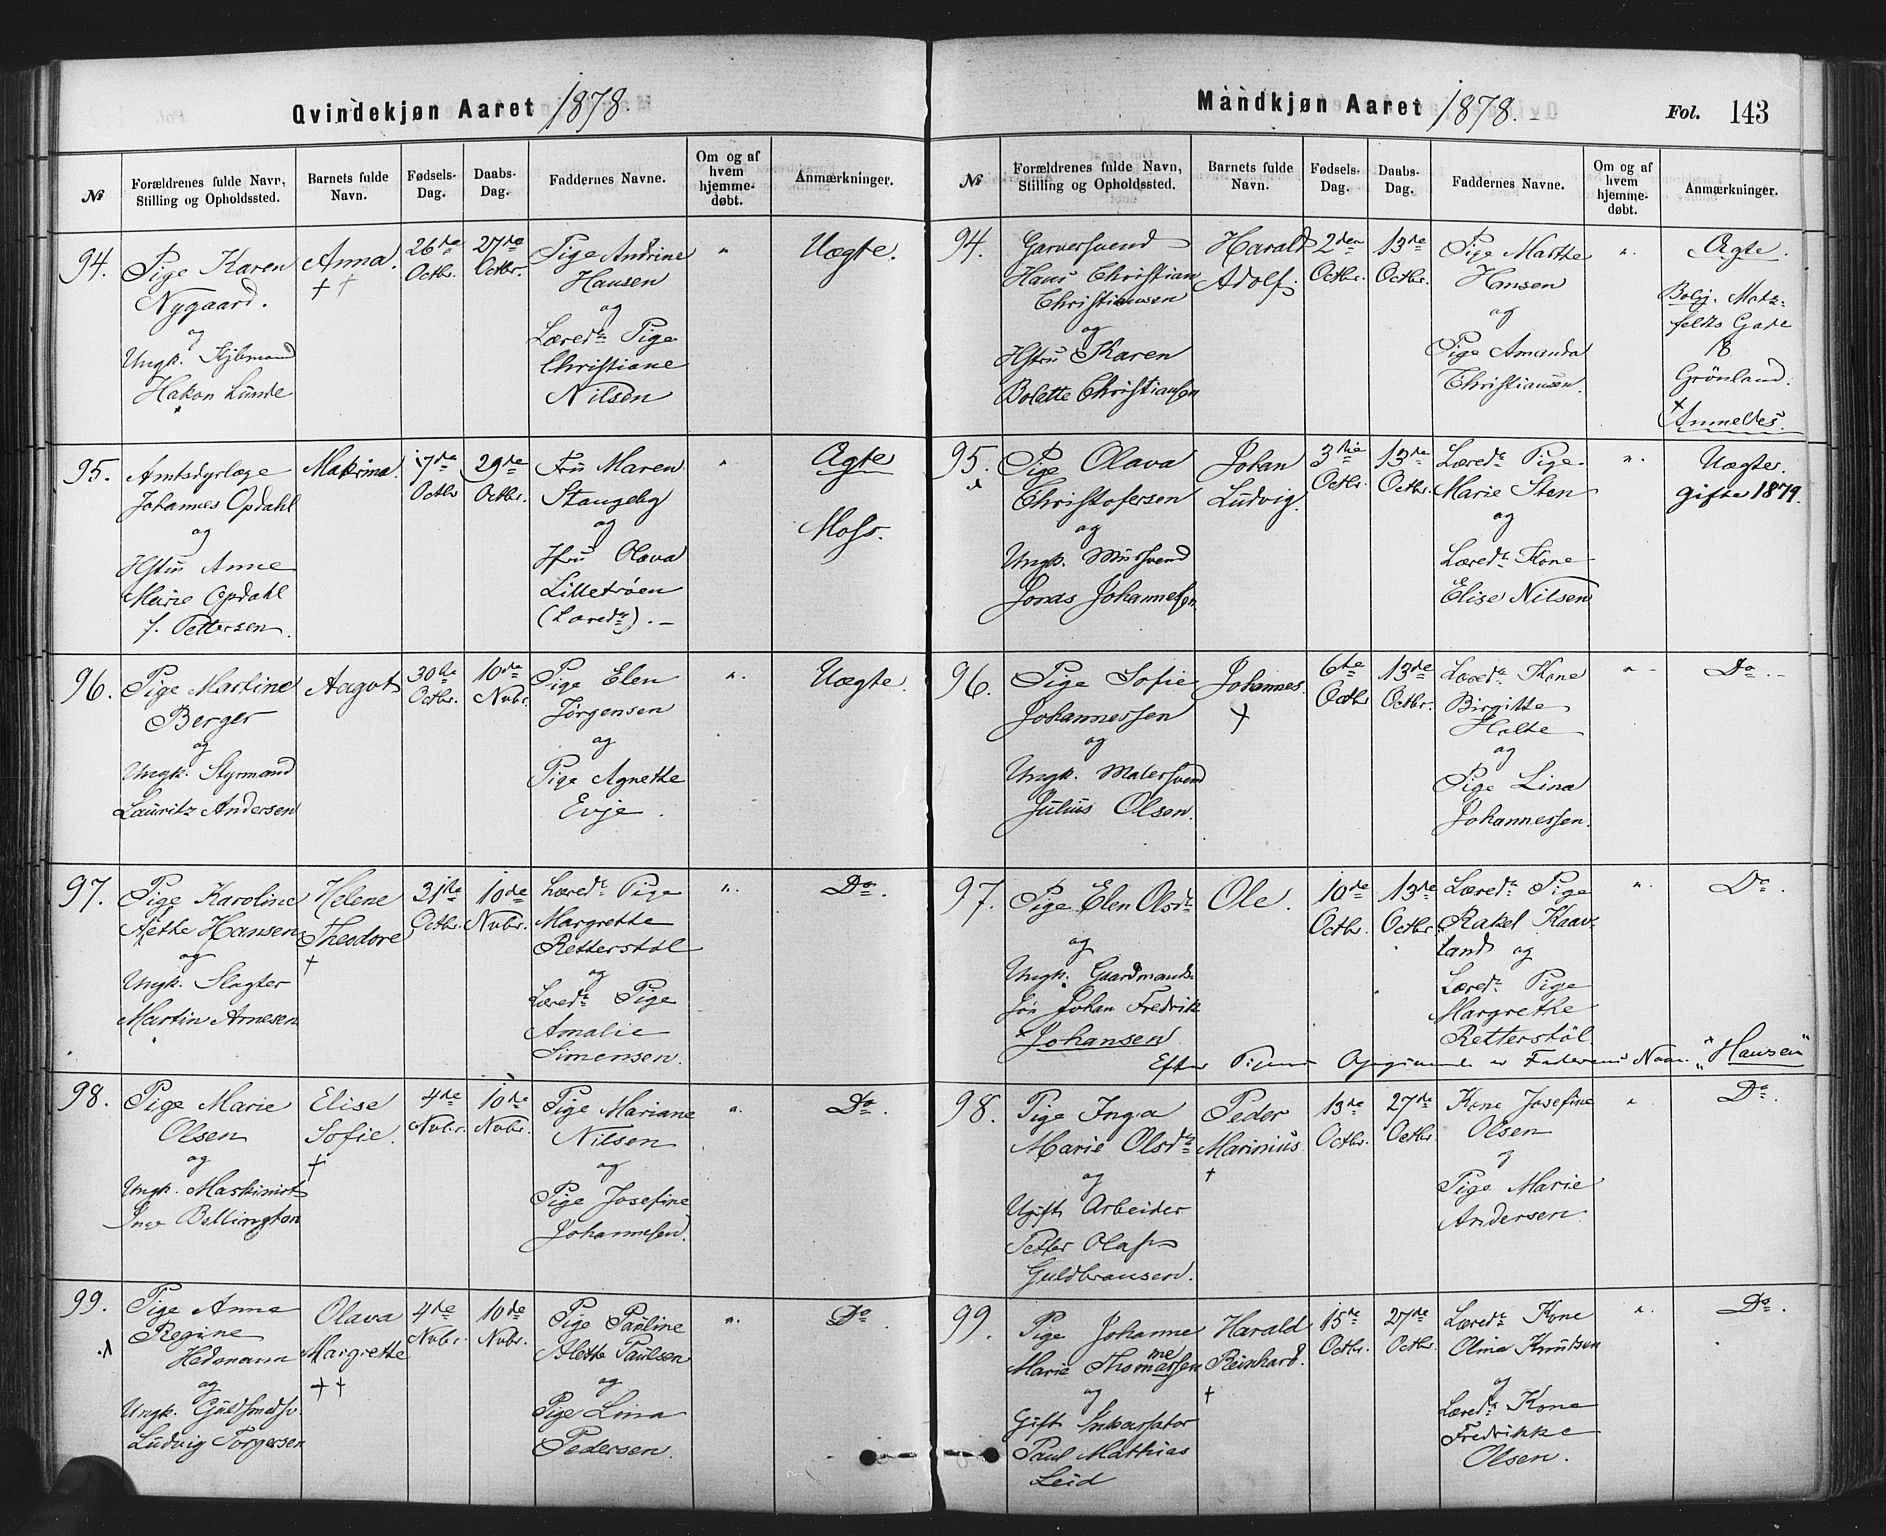 Qvindekjøn Aaret 1878.
№
Forældrenes fulde Navn, Stilling og Opholdssted.
Barnets fulde Navn.
Fødsels-Dag.
Daabs-Dag.
Faddernes Navne.
Om og af hvem hjemme-døbt.
Anmærkninger.
94.
Pige Karen
Nygaard.
og
Ungk.
Hakon Lunde
Anna.
† †
26de
Octbr.
27de
Octbr.
Pige Andrine
Hansen
og
Læred. Pige
Christiane
Nilsen
"
Uægte.
95.
Amtsdyrlæge
Johannes Opdahl
og
Hstru Anne
Marie Opdahl
f. Pettersen.
17de
Octbr
29de
Octbr.
Fru Maren
Stangeby
og
Hfru Olava
Lilletröen
(Læred.). —
"
Ægte
Moss.
96.
Pige Martine
Berger
og
Ungk. Styrmand
Lauritz Andersen
Aagot
30te
Octbr.
10de
Nvbr.
Pige Elen
Jørgensen
og
Pige Agnethe
Evje.
".
Uægte.
97.
Pige Karoline
Aette Hansen
og
Ungk. Slagter
Martin Arnesen
Helene
Theodore
†
31te
Octbr.
10de
Nvbr.
Læred. Pige
Margrethe
Retterstøl
og
Læred. Pige
Amalie
Simensen.
".
Do.
98.
Pige Marie
Olsen
og
Ungk. Maskinist
Bellington
Elise
Sofie.
†
4de
Nvbr.
10de
Nvbr.
Pige Mariane
Nilsen
og
Pige Josefine
Johannesen.
".
Do.
99.
Pige Anna
Regine
Hedemann
og
Ungk. Guldsmedsv.
Ludvig Torgersen
Olava
Margrethe
† †
4de
Nvbr.
10de
Nvbr.
Pige Pauline
Alette Paulsen
og
Pige Lina
Pedersen.
".
Do.
Mandkjøn Aaret 1878. -
Fol. 143
№
Forældrenes fulde Navn, Stilling og Opholdssted.
Barnets fulde Navn.
Fødsels-Dag.
Daabs-Dag.
Faddernes Navne.
Om og af hvem hjemme-døbt.
Anmærkninger.
94.
Garversvend
Hans Christian
Christiansen
og
Hstru Karen
Bolette Christiansen
Harald
Adolf.
2den
Octbr.
13de
Octbr.
Pige Marthe
Hansen
og
Pige Amanda
Christiansen.
".
Ægte.
Bolig. Motz-
feldts Gade
18
Grönland.
† Anmeldes.
95.
Pige Olava
Christofersen
og
Ungk. Mursvend
Jonas Johannesen
Johan
Ludvig.
3die
Octbr.
13de
Octbr.
Læred. Pige
Marie Sten
og
Læred. Kone
Elise Nilsen
".
Uægte.
gifte 1879.
96.
Pige Sofie
Johannessen
og
Ungk. Malersvend
Julius Olsen.
Johannes.
†
6te
Octbr
13de
Octbr.
Læred. Kone
Birgitte
Holte
og
Pige Lina
Johannessen.
"
Do. -
97.
Pige Elen Olsdr
og
Ungk. Gaardmands-
søn Johan Fredrik
Johansen
Ole.
10de
Octbr.
13de
Octbr.
Læred. Pige
Rakel Kaav-
land og
Læred. Pige
Margrethe
Retterstöl
".
Do.
Efter Pigens Opgivende er Faderens Navn "Hansen"
98.
Pige Inga
Marie Olsdr
og
Ugift Arbeider
Petter Olaf
Guldbransen.
Peder
Marinius.
†
13de
Octbr.
27de
Octbr
Kone Josefine
Olsen
og
Pige Marie
Andersen.
".
Do.
99.
Pige Johanne
Marie Thomassen
og
Gift Inkassator
Paul Mathias
Leid
Harald
Reinhard.
†
15de
Octbr.
27de
Octbr.
Læred. Kone
Olina Knutsen
og
Læred. Kone
Fredrikke
Olsen.
".
Do.